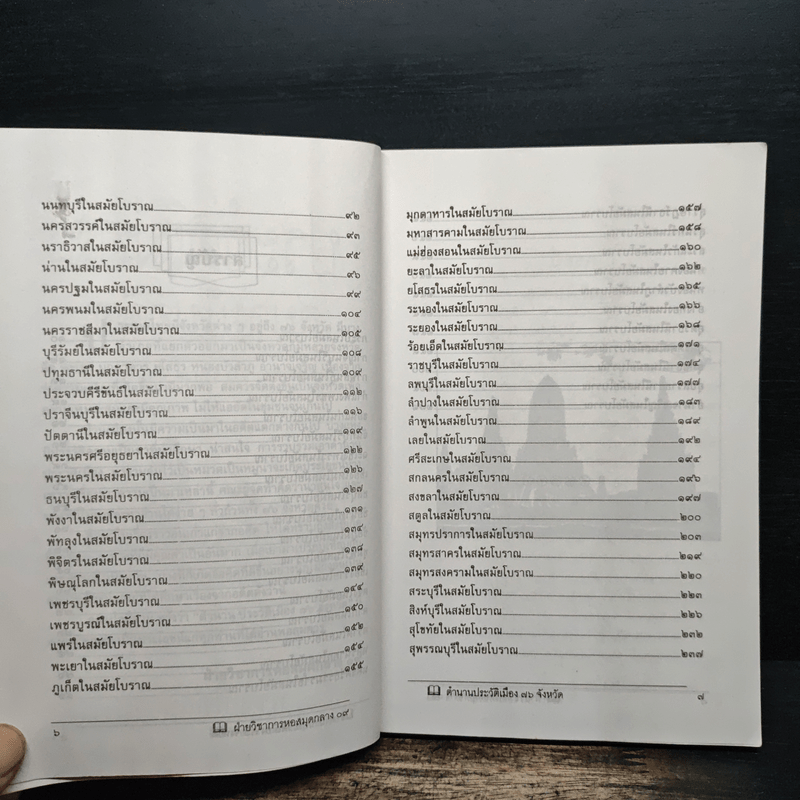 นนทบุรีในสมัยโบราณ ๙๒
นครสวรรค์ในสมัยโบราณ ๙๓
นราธิวาสในสมัยโบราณ ๙๕
น่านในสมัยโบราณ ๙๖
นครปฐมในสมัยโบราณ ๙๙
นครพนมในสมัยโบราณ ๑๐๔
นครราชสีมาในสมัยโบราณ ๑๐๕
บุรีรัมย์ในสมัยโบราณ ๑๐๘
ปทุมธานีในสมัยโบราณ ๑๐๙
ประจวบคีรีขันธ์ในสมัยโบราณ ๑๑๒
ปราจีนบุรีในสมัยโบราณ ๑๑๖
ปัตตานีในสมัยโบราณ ๑๑๙
พระนครศรีอยุธยาในสมัยโบราณ ๑๒๒
พระนครในสมัยโบราณ ๑๒๖
ธนบุรีในสมัยโบราณ ๑๒๗
พังงาในสมัยโบราณ ๑๓๑
พัทลุงในสมัยโบราณ ๑๓๔
พิจิตรในสมัยโบราณ ๑๓๘
พิษณุโลกในสมัยโบราณ ๑๓๙
เพชรบุรีในสมัยโบราณ ๑๔๔
เพชรบูรณ์ในสมัยโบราณ ๑๕๐
แพร่ในสมัยโบราณ ๑๕๒
พะเยาในสมัยโบราณ ๑๕๔
ภูเก็ตในสมัยโบราณ ๑๕๕
๖ ฝ่ายวิชาการหอสมุดกลาง ๐๙
มุกดาหารในสมัยโบราณ ๑๕๗
มหาสารคามในสมัยโบราณ ๑๕๘
แม่ฮ่องสอนในสมัยโบราณ ๑๖๐
ยะลาในสมัยโบราณ ๑๖๒
ยโสธรในสมัยโบราณ ๑๖๕
ระนองในสมัยโบราณ ๑๖๖
ระยองในสมัยโบราณ ๑๖๘
ร้อยเอ็ดในสมัยโบราณ ๑๗๑
ราชบุรีในสมัยโบราณ ๑๗๔
ลพบุรีในสมัยโบราณ ๑๗๗
ลำปางในสมัยโบราณ ๑๘๓
ลำพูนในสมัยโบราณ ๑๘๙
เลยในสมัยโบราณ ๑๙๒
ศรีสะเกษในสมัยโบราณ ๑๙๔
สกลนครในสมัยโบราณ ๑๙๖
สงขลาในสมัยโบราณ ๑๙๗
สตูลในสมัยโบราณ ๒๐๐
สมุทรปราการในสมัยโบราณ ๒๐๓
สมุทรสาครในสมัยโบราณ ๒๑๙
สมุทรสงครามในสมัยโบราณ ๒๒๐
สระบุรีในสมัยโบราณ ๒๒๓
สิงห์บุรีในสมัยโบราณ ๒๒๖
สุโขทัยในสมัยโบราณ ๒๓๒
สุพรรณบุรีในสมัยโบราณ ๒๓๗
ตำนานประวัติเมือง ๗๖ จังหวัด ๗